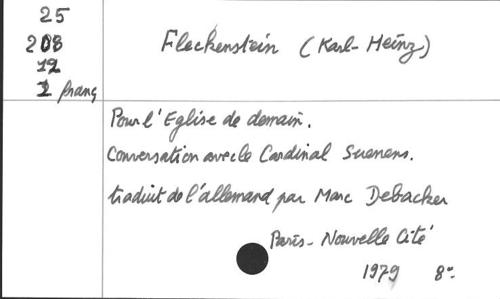 25
208
12
1 franç
Fleckenstein (Karl-Heinz)
Pour l'Eglise de demain.
Conversation avec le Cardinal Suenens.
traduit de l'allemand par Marc Debacker
Paris - Nouvelle Cité
1979 8°